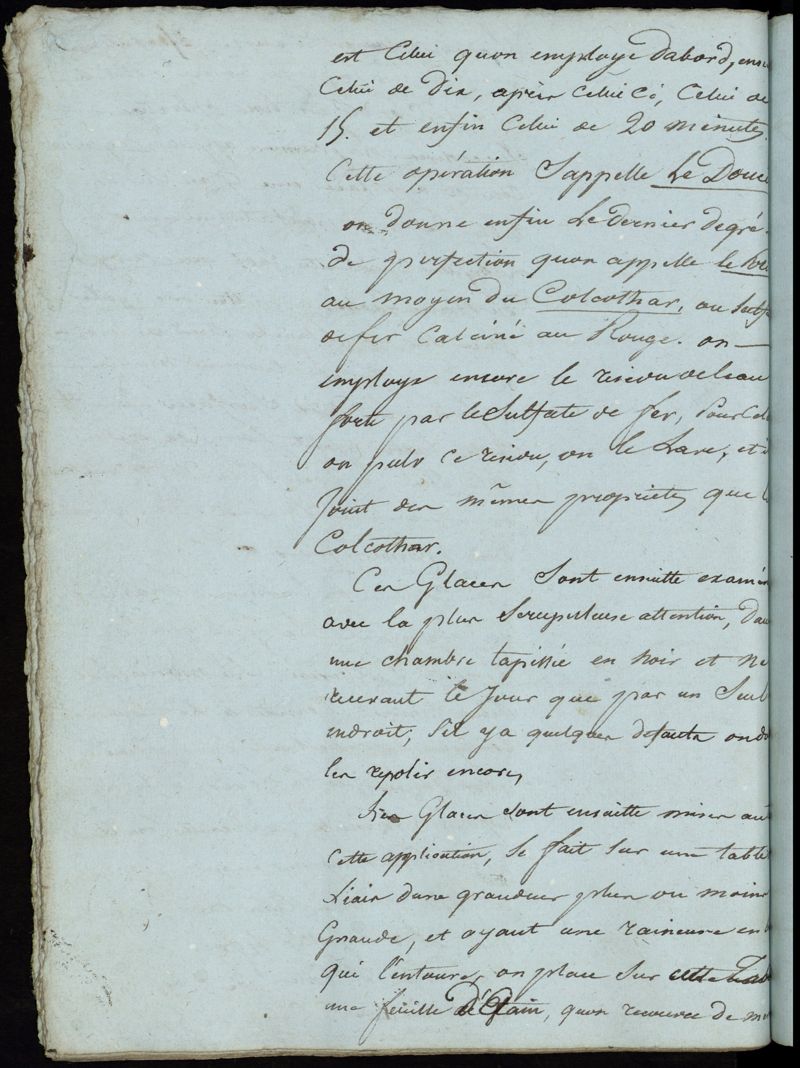 est Celui quon employe dabord, ensu
Celui de Dix, après Celui Ci, Celui de
15. et enfin Celui de 20 minutes.
Cette opération Sappelle Le Douci
on donne enfin Le dernier degré
de perfection quon appelle le Poli
au moyen du Colcothar, ou Sulf
de fer Calciné au Rouge. on —
employe encore le residu de leau
forte par le Sulfate de fer, pour Cela
on pulv ce residu, on le Lave, et il
Jouit des mêmes proprietes que l
Colcothar.
Ces Glaces Sont ensuitte examin
avec la plus Scrupuleuse attention, Dan
une chambre tapissée en noir et ne
recevant le Jour que par un Seul
endroit; Sil y a quelques defauts on do
les repolir encore,
Les Glaces Sont ensuitte mises au
cette application, Se fait Sur une table
Liais dune grandeur plus ou moins
Grande, et ayant une raineure en
qui l'entoure, on place Sur cette Tab
une feuille D'Etain, quon recouvre de m